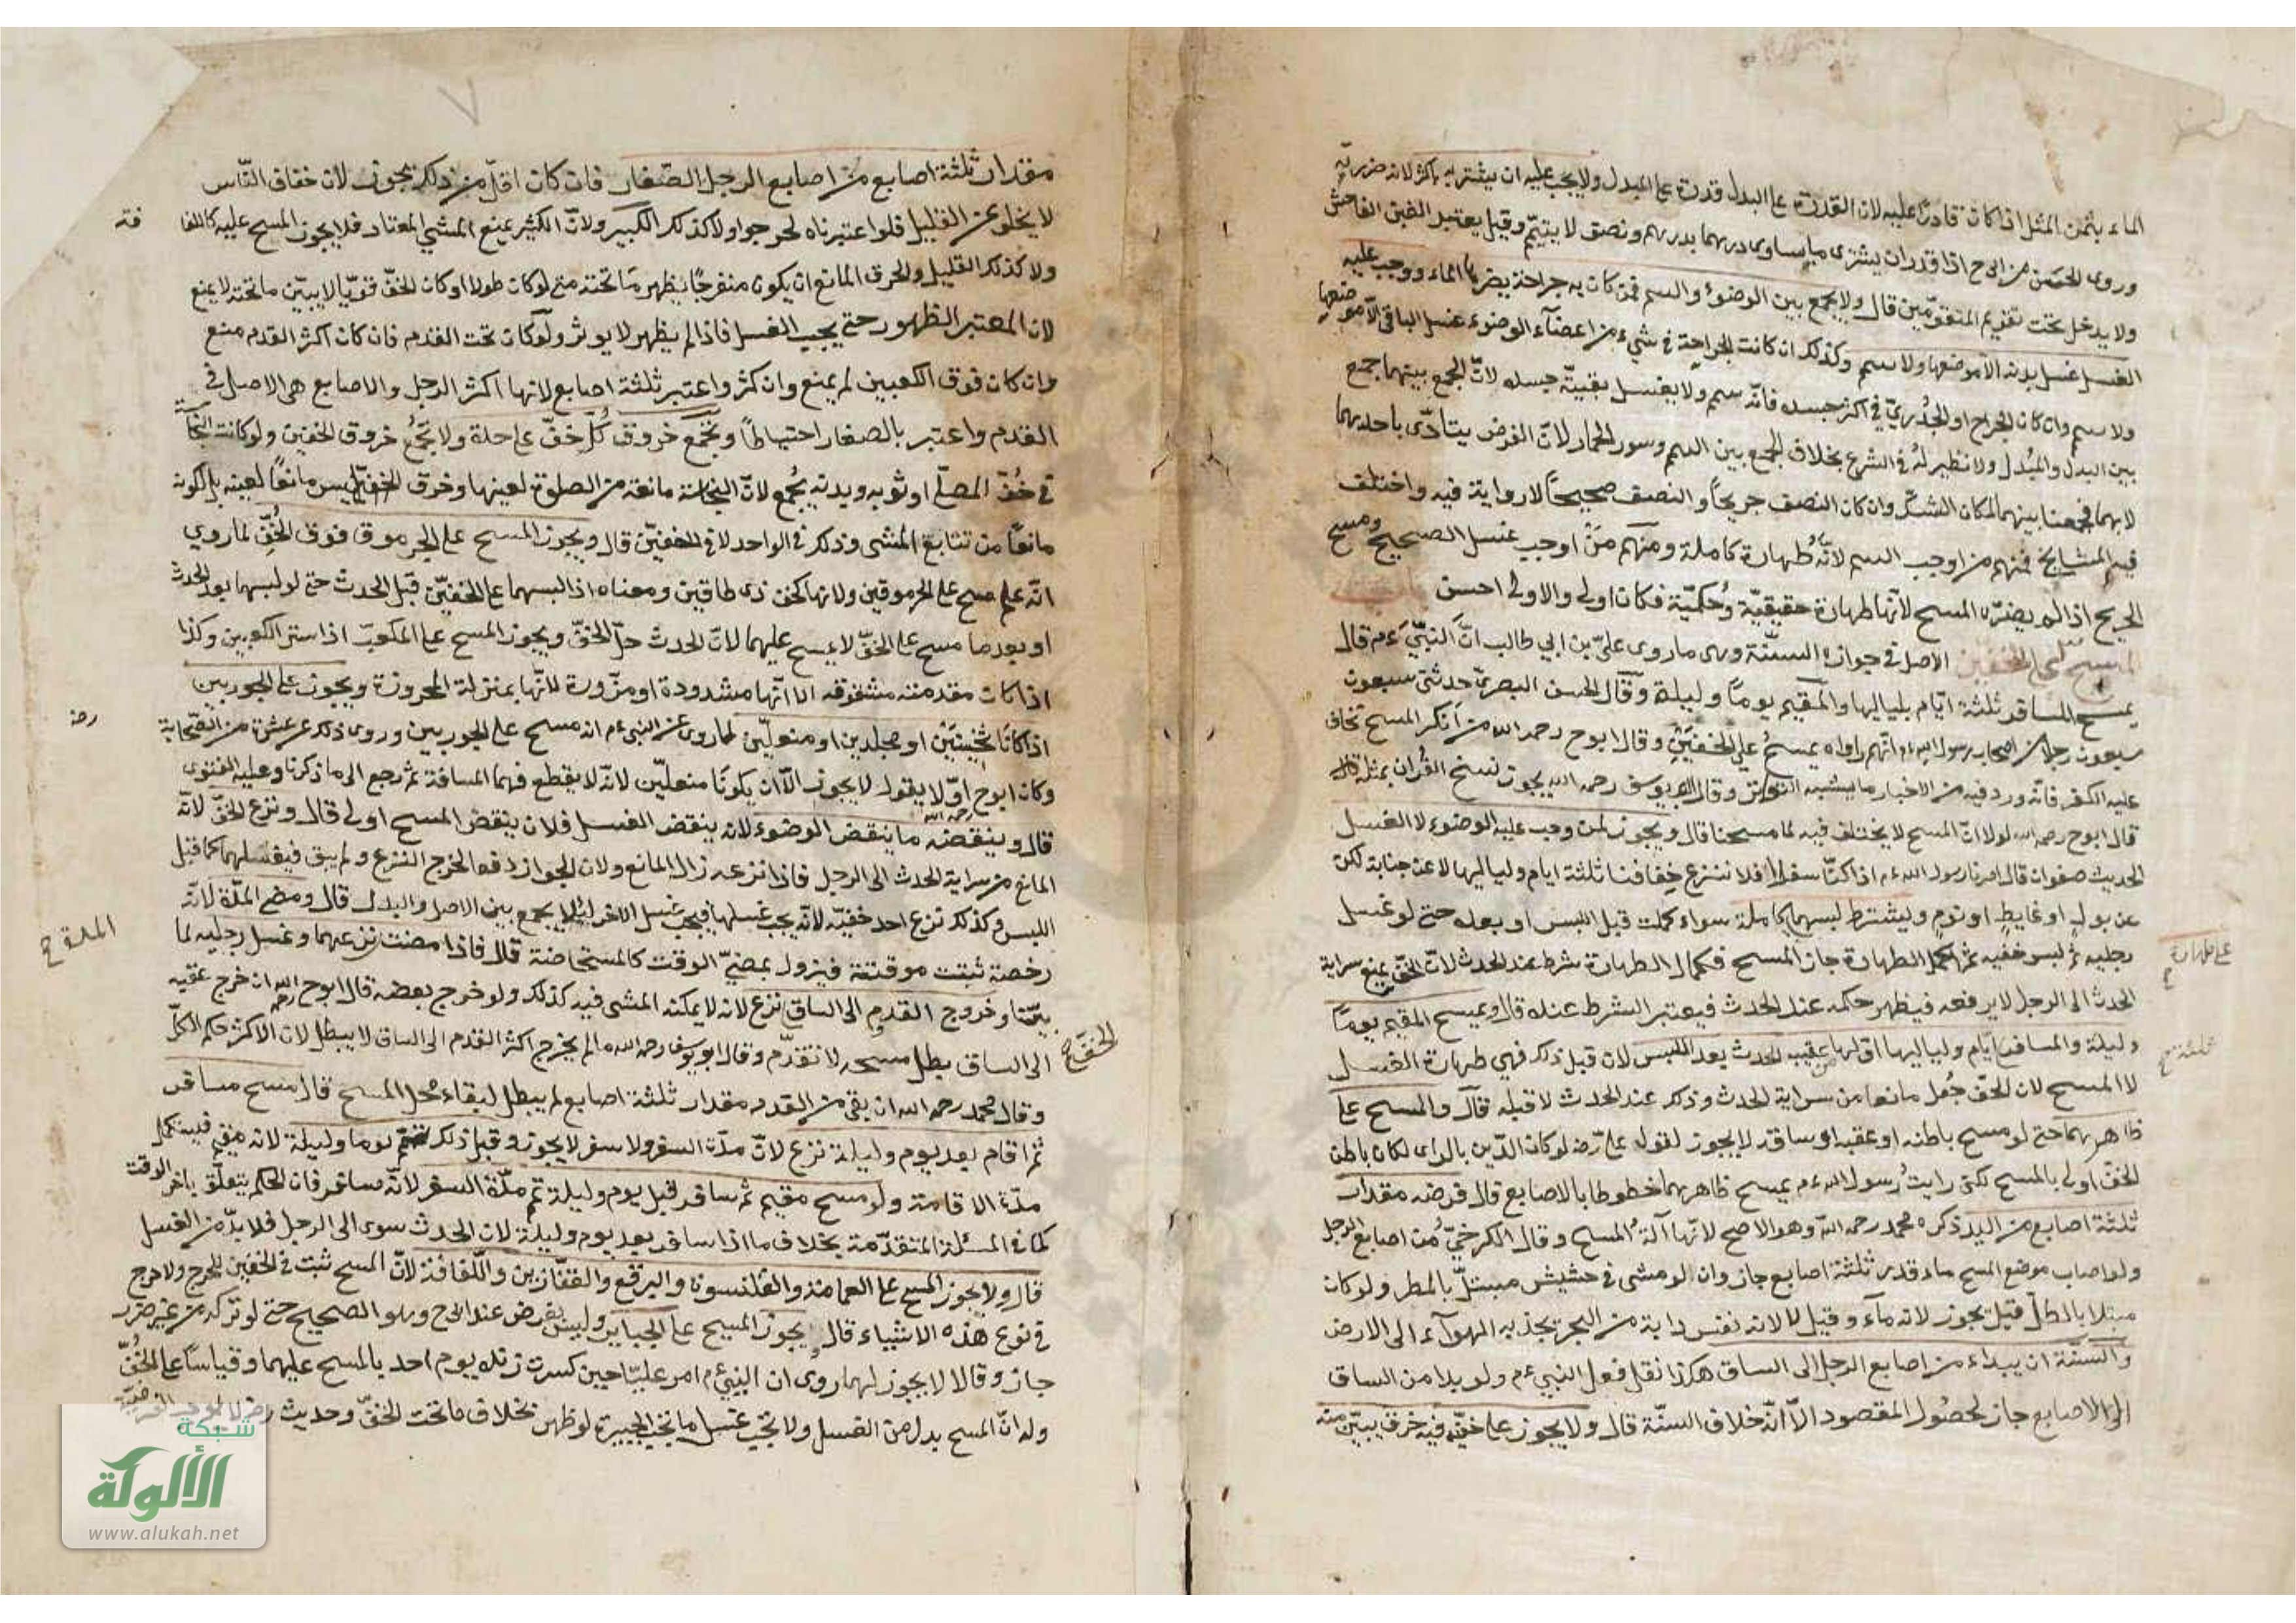 الماء بثمن المثل اذا كان قادرا عليه لان القدرة على البدل قدرة على المبدل ولا يجب عليه ان يشتريه باكثر لانه ضرر به
وروى الحسن عن ابى ح اذا قدر ان يشترى ما يساوى درهما بدرهم ونصف لا يتيمم وقيل يعتبر الغبن الفاحش
ولا يدخل تحت تقويم المتقومين قال ولا يجمع بين الوضوء والتيمم فمن كان به جراحة يضرها الماء ووجب عليه
الغسل غسل بدنه الا موضعها ولا يتيمم وكذلك ان كانت الجراحة فى شىء من اعضاء الوضوء غسل الباقى الا موضعها
ولا يتيمم وان كان الجراح او الجدرى فى اكثر جسده فانه يتيمم ولا يغسل بقية جسده لان الجمع بينهما جمع
بين البدل والمبدل ولا نظير له فى الشرع بخلاف الجمع بين التيمم وسور الحمار لان الفرض يتادى باحدهما
لا بهما فجمعنا بينهما لمكان الشك وان كان النصف جريحا والنصف صحيحا لا رواية فيه واختلف
فيه المشايخ فمنهم من اوجب التيمم لانه طهارة كاملة ومنهم من اوجب غسل الصحيح ومسح
الجريح اذا لم يضره المسح لانها طهارة حقيقية وحكمية فكان اولى والاولى احسن
المسح على الخفين الاصل فى جوازه السنة وهى ما روى على بن ابى طالب ان النبى ءم قال
يمسح المسافر ثلثة ايام بلياليها والمقيم يوما وليلة وقال الحسن البصرى حدثنى سبعون
سبعون رجلا من اصحاب رسول الله ءم انهم راواه يمسح على الخفين وقال ابو ح رحمه الله من انكر المسح يخاف
عليه الكفر فانه ورد فيه من الاخبار ما يشبه التواتر وقال ابو يوسف رحمه الله يجوز نسخ القران بمثله قال
قال ابو ح رحمه الله لولا ان المسح لا يختلف فيه لما مسحنا قال ويجوز لمن وجب عليه الوضوء لا الغسل
لحديث صفوان قال امرنا رسول الله ءم اذا كنا سفرا فلا ننزع خفافنا ثلثة ايام ولياليها لا عن جنابة لكن
عن بول او غايط او نوم ويشترط لبسهما كاملة سواء كملت قبل اللبس او بعده حتى لو غسل
رجليه ثم لبس خفيه ثم اكمل الطهارة جاز المسح فكمال الطهارة شرط عند الحدث لان الخف يمنع سراية
على طهارة
الحدث الى الرجل لا يرفعه فيظهر حكمه عند الحدث فيعتبر الشرط عنده قال ويمسح المقيم يوما
وليلة والمسافر ايام ولياليها اولها عقيب الحدث بعد اللبس لان قبل ذلك فهى طهارة الغسل
ثلثة
لا المسح لان الخف جعل مانعا من سراية الحدث وذلك عند الحدث لا قبله قال والمسح على
ظاهرهما حتى لو مسح باطنه او عقبه او ساقه لا يجوز لقول على رضه لو كان الدين بالراى لكان باطن
الخف اولى بالمسح لكنى رايت رسول الله ءم يمسح ظاهرهما خطوطا بالاصابع قال فرضه مقدار
ثلثة اصابع من اليد ذكره محمد رحمه الله وهو الاصح لانها آلة المسح وقال الكرخى من اصابع الرجل
ولو اصاب موضع المسح ماء قدر ثلثة اصابع جاز وان لو مشى فى حشيش مبتل بالمطر ولو كان
مبتلا بالطل قيل يجوز لانه ماء وقيل لا لانه نفس دابة من البحر يجذبه الهوآء الى الارض
والسنة ان يبداء من اصابع الرجل الى الساق هكذا نقل فعل النبى ءم ولو بدا من الساق
الى الاصابع جاز لحصول المقصود الا انه خلاف السنة قال ولا يجوز على خف فيه خرق يبين منه
مقدار ثلثة اصابع من اصابع الرجل الصغار فان كان اقل من ذلك يجوز لان خفاف الناس
لا يخلو عن القليل فلو اعتبرناه لحرجوا ولا كذلك الكبير ولان الكثير يمنع المشى المعتاد فلا يجوز المسح عليه كاللفا
فة
ولا كذلك القليل والخرق المانع ان يكون منفرجا يظهر ما تحته حتى لو كان طولا او كان الخف قويا لا يبين ما تحته لا يمنع
لان المعتبر الظهور حتى يجب الغسل فاذا لم يظهر لا يوثر ولو كان تحت القدم فان كان اكثر القدم منع
وان كان فوق الكعبين لم يمنع وان كثر واعتبر ثلثة اصابع لانها اكثر الرجل والاصابع هى الاصل فى
القدم واعتبر بالصغار احتياطا وتجمع خروق كل خف على حدة ولا تجمع خروق الخفين ولو كانت النجاسة
فى خف المصلى او ثوبه وبدنه يجمع لان النجاسة مانعة من الصلوة لعينها وخرق الخف ليس مانعا لعينه بل لكونه
مانعا من تتابع المشى وذلك فى الواحد لا فى الخفين قال ويجوز المسح على الجرموق فوق الخف لما روى
انه علم مسح على الجرموقين ولانهما كخف ذى طاقين ومعناه اذا لبسهما على الخفين قبل الحدث حتى لو لبسهما بعد الحدث
او بعد ما مسح على الخف لا يمسح عليهما لان الحدث حل الخف ويجوز المسح على المكعب اذا ستر الكعبين وكذا
اذا كانت مقدمته مشقوقة الا انها مشدودة او مزرورة لانها بمنزلة المخروزة ويجوز على الجوربين
اذا كانا ثخينين او مجلدين او منعلين لما روى عن النبى ءم انه مسح على الجوربين وروى ذلك عن عشرة من الصحابة
رضه
وكان ابو ح اولا يقول لا يجوز الا ان يكونا منعلين لانه لا يقطع فيهما المسافة ثم رجع الى ما ذكرنا وعليه الفتوى
قال وينقضه ما ينقض الوضوء لانه ينقض الغسل فلان ينقض المسح اولى قال ونزع الخف لانه
المانع من سراية الحدث الى الرجل فاذا نزعه زال المانع ولان الجواز دفعا لحرج النزع ولم يبق فيغسلهما كما قبل
اللبس وكذلك نزع احد خفيه لانه يجب غسلها فيجب غسل الاخر لئلا يجمع بين الاصل والبدل قال ومضى المدة لانه
المدة ح
رخصة ثبتت موقتة فيزول بمضى الوقت كالمستحاضة قال فاذا مضت نزعهما وغسل رجليه لما
بينا وخروج القدم الى الساق نزع لانه لا يمكنه المشى فيه كذلك ولو خرج بعضه قال ابو ح رحمه الله ان خرج عقبه
الى الساق بطل مسحه لا تقدم وقال ابو يوسف رحمه الله ما لم يخرج اكثر القدم الى الساق لا يبطل لان الاكثر حكم الكل
الخف
وقال محمد رحمه الله ان بقى من القدم مقدار ثلثة اصابع لم يبطل لبقاء محل المسح قال مسح مسافر
ثم اقام بعد يوم وليلة نزع لان مدة السفر ولا سفر لا يجوز وقبل ذلك يتمم يوما وليلة لانه مقيم فيستكمل
مدة الاقامة ولو مسح مقيم ثم سافر قبل يوم وليلة تمم مدة السفر لانه مسافر فان الحكم يتعلق باخر الوقت
كما فى المسئلة المتقدمة بخلاف ما اذا سافر بعد يوم وليلة لان الحدث سرى الى الرجل فلا بد من الغسل
قال ولا يجوز المسح على العمامة والقلنسوة والبرقع والقفازين واللفافة لان المسح ثبت فى الخفين للحرج ولا حرج
فى نوع هذه الاشياء قال ويجوز المسح على الجباير وليس بفرض عند ابى ح وهو الصحيح حتى لو تركه من غير ضرر
جاز وقالا لا يجوز لهما روى ان النبى ءم امر عليا حين كسرت زنده يوم احد بالمسح عليهما وقياسا على الخف
وله ان المسح بدل من الغسل ولا يجب غسل ما تحت الجبيرة لو ظهر بخلاف ما تحت الخف وحديث
شبكة
الألوكة
www.alukah.net